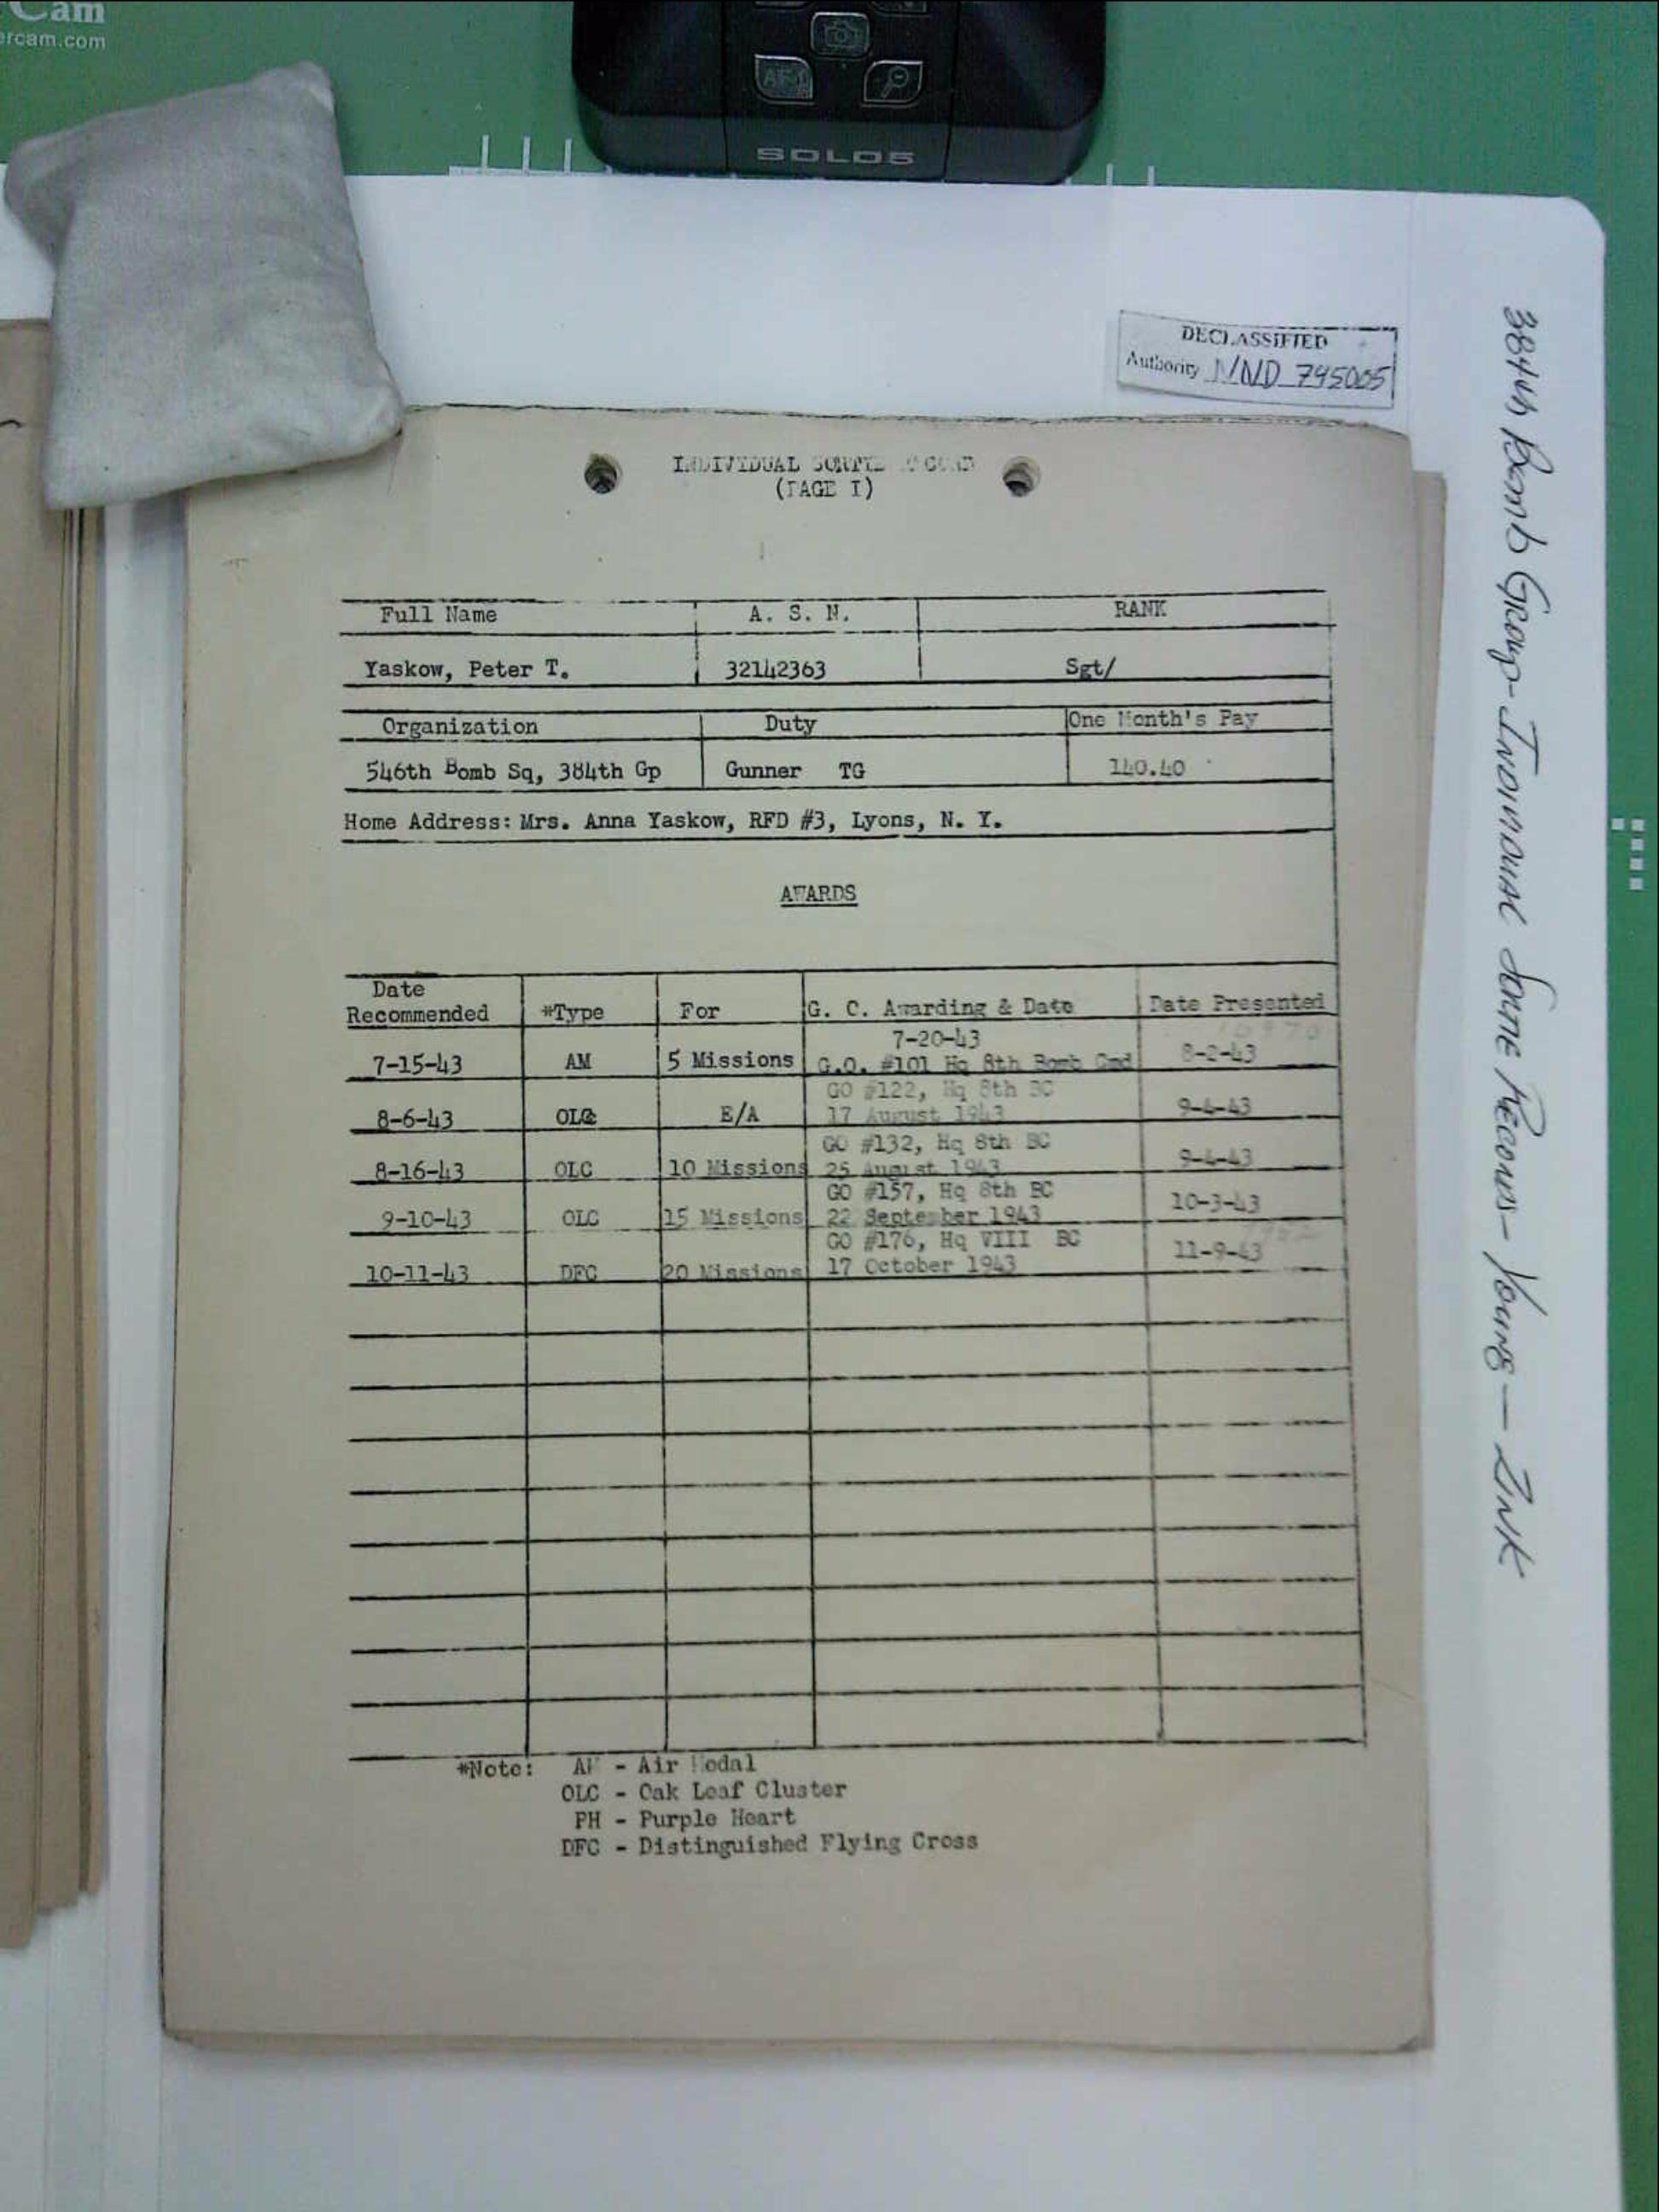 Cam
ercam.com
SOLO5
DECLASSIFIED
Authority NND 745005
INDIVIDUAL SORTIE RECORD
(PAGE I)
Full Name A. S. N. RANK
Yaskow, Peter T. 32142363 Sgt/
Organization Duty One Month's Pay
546th Bomb Sq, 384th Gp Gunner TG 140.40
Home Address: Mrs. Anna Yaskow, RFD #3, Lyons, N. Y.
AWARDS
Date
Recommended *Type For G. C. Awarding & Date Date Presented
7-20-43
7-15-43 AM 5 Missions G.O. #101 Hq 8th Bomb Cmd 8-2-43
GO #122, Hq 8th BC
8-6-43 OLC E/A 17 August 1943 9-4-43
GO #132, Hq 8th BC
8-16-43 OLC 10 Missions 25 August 1943 9-4-43
GO #157, Hq 8th BC
9-10-43 OLC 15 Missions 22 September 1943 10-3-43
GO #176, Hq VIII BC
10-11-43 DFC 20 Missions 17 October 1943 11-9-43
*Note: AM - Air Medal
OLC - Oak Leaf Cluster
PH - Purple Heart
DFC - Distinguished Flying Cross
384th Bomb Group- Individual Sortie Records- Young- Zink